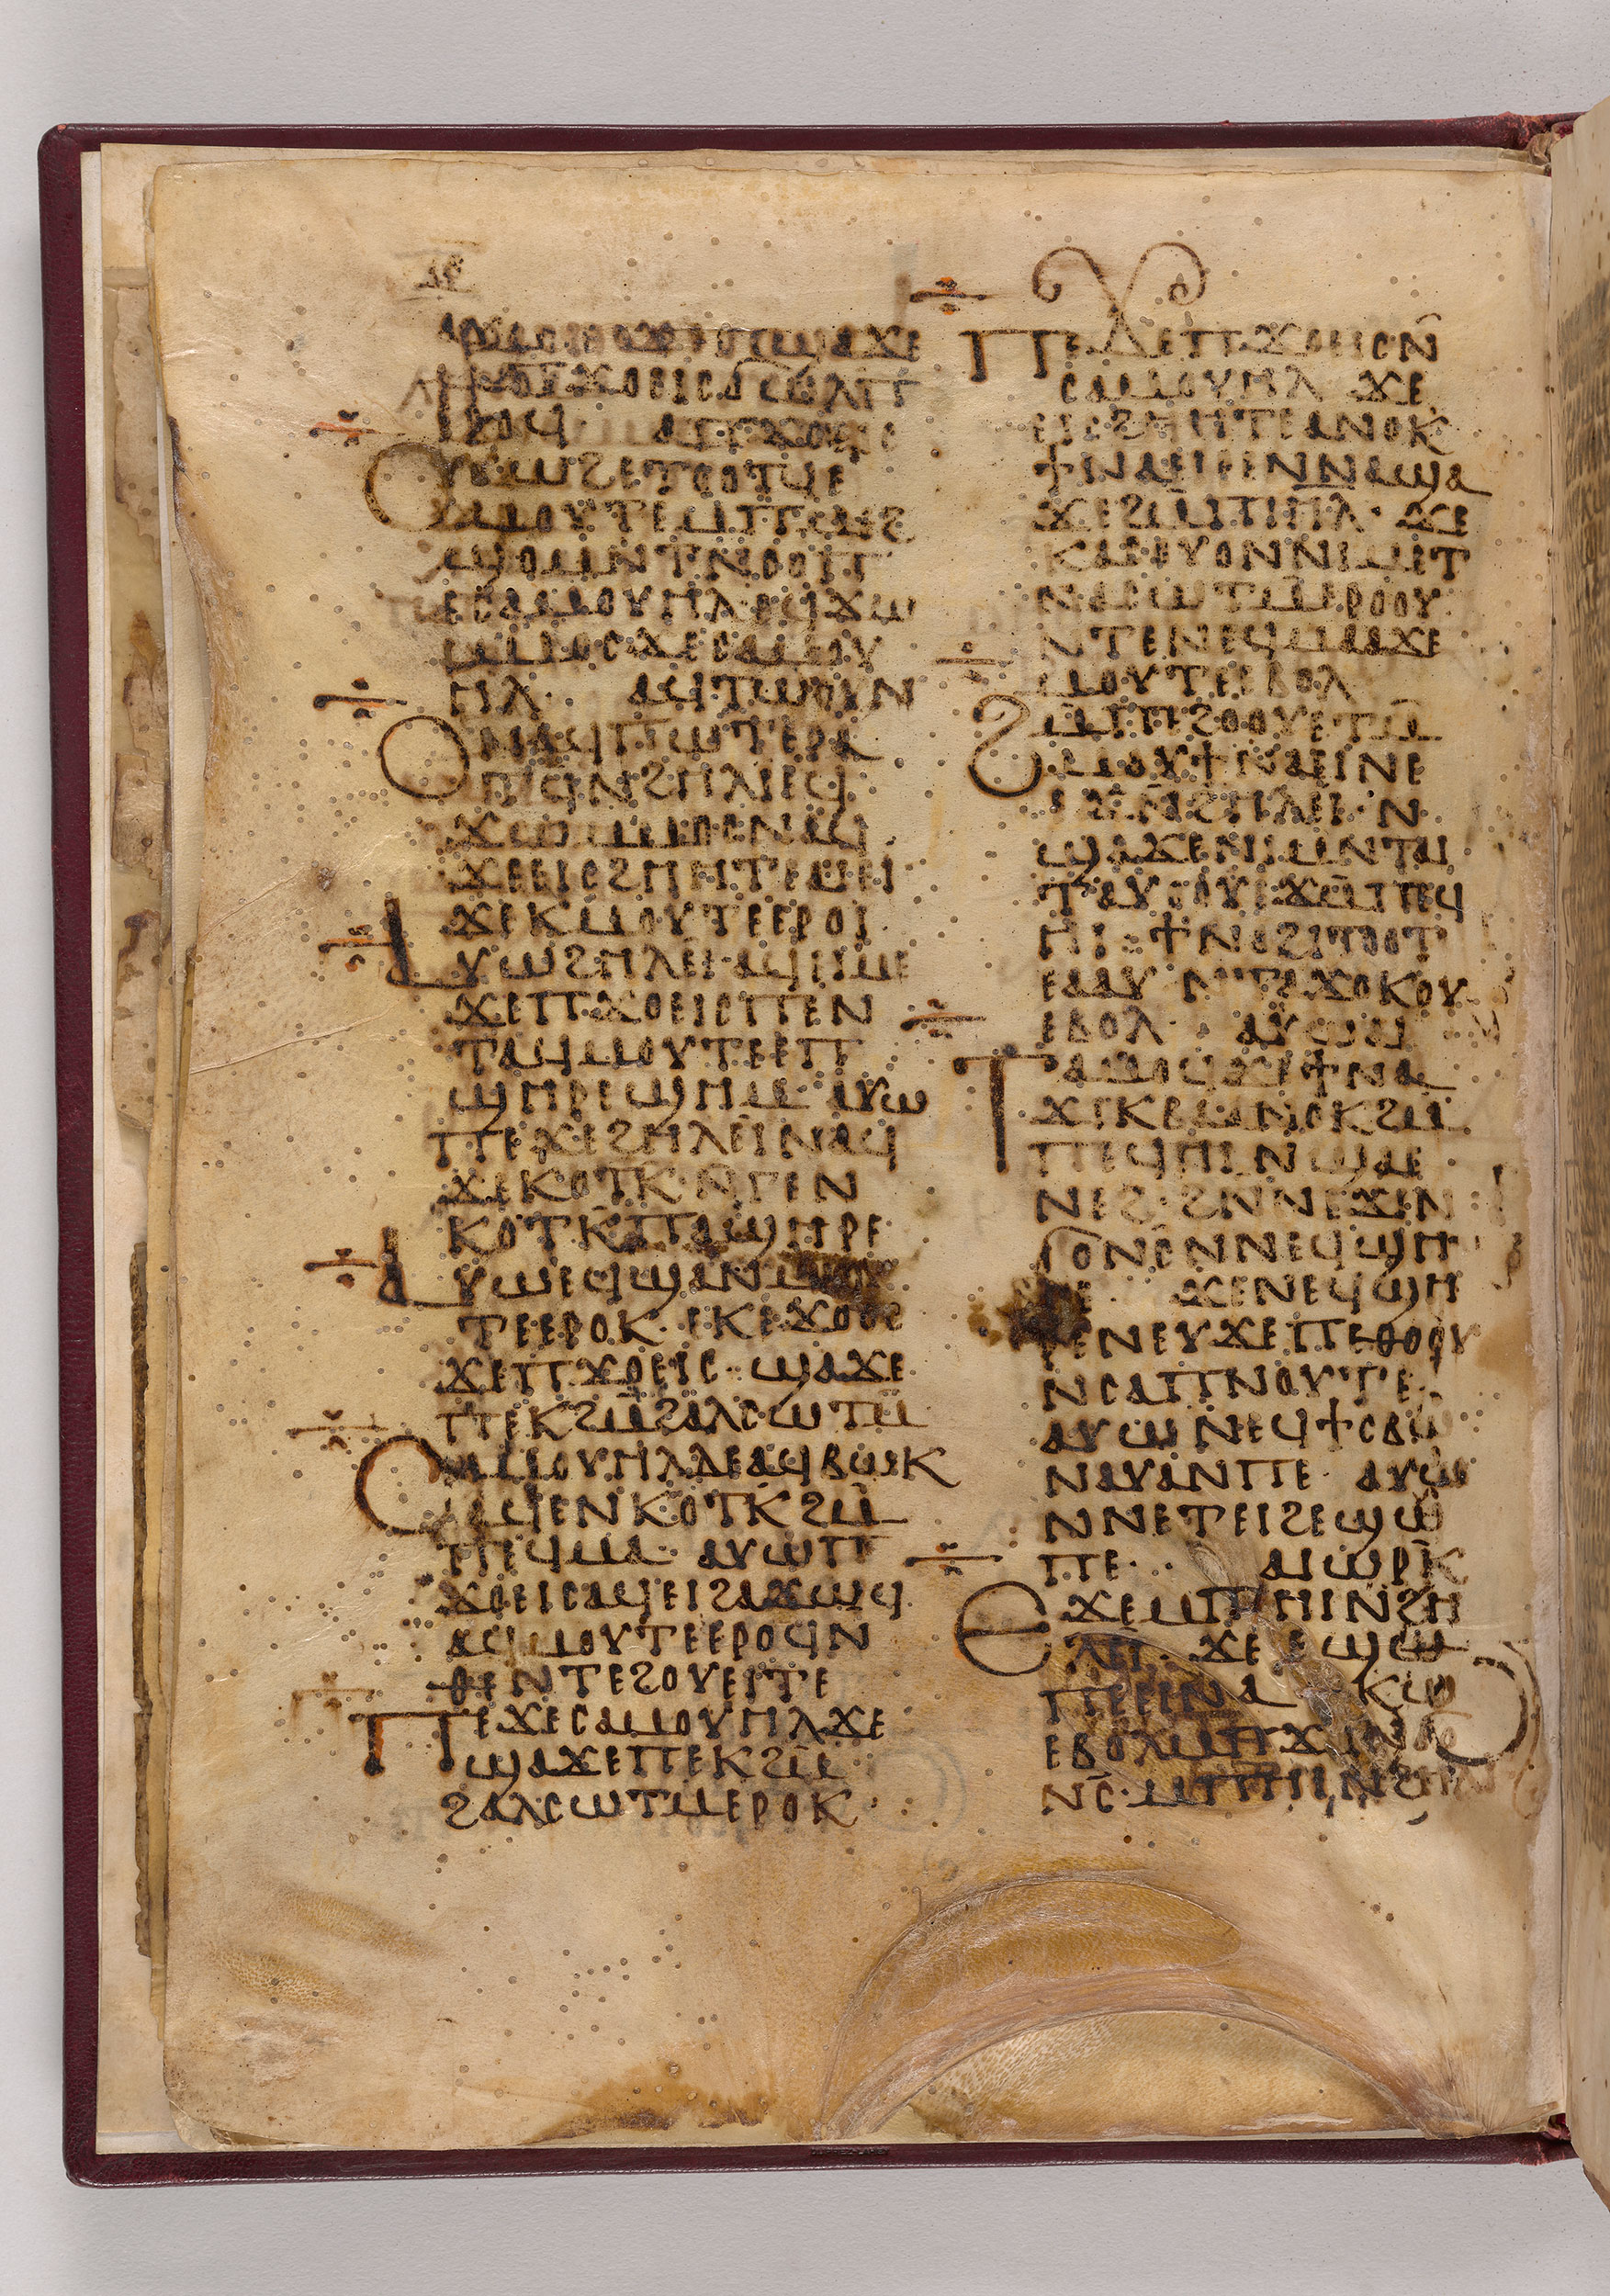 ϣⲁϫⲉ
ⲩⲱϩⲉⲧⲟⲟⲧϥⲉ
ⲙⲟⲩⲧⲉⲙⲡⲙⲉϩ
ϣⲟⲙⲛⲧⲛⲥⲟⲡ
ⲉⲥⲁⲙⲟⲩⲏⲗ ⲉϥϫⲱ
ⲙⲙⲟⲥ ϫⲉⲥⲁⲙⲟⲩ
ⲏⲗ· ⲁϥⲧⲱⲟⲩⲛ
ⲟⲛ ⲁϥⲡⲱⲧ ⲉⲣⲁ
ⲧϥⲛϩⲏⲗⲉⲓ ⲉϥ
ϫⲱ ⲙⲙⲟⲥ ⲛⲁϥ
ϫⲉⲉⲓⲥϩⲏⲏⲧⲉ ⲁⲓⲉⲓ
ϫⲉⲕⲙⲟⲩⲧⲉ ⲉⲣⲟⲓ
ⲁⲩⲱϩⲏⲗⲉⲓ ⲁϥⲉⲓⲙⲉ
ϫⲉⲡϫⲟⲉⲓⲥⲡⲉⲛ
ⲧⲁϥⲙⲟⲩⲧⲉ ⲉⲡ
ϣⲏⲣⲉϣⲏⲙ· ⲁⲩⲱ
ⲡⲉϫⲉϩⲏⲗⲉⲓ ⲛⲁϥ
ϫⲉⲕⲟⲧⲕ ⲛⲅⲉⲛ
ⲕⲟⲧⲕ̄ ⲡⲁϣⲏⲣⲉ
ⲁⲩⲱⲉϥϣⲁⲛⲙⲟⲩ
ⲧⲉⲉⲣⲟⲕ· ⲉⲕⲉϫⲟⲟⲥ
ϫⲉⲡϫⲟⲉⲓⲥ ϣⲁϫⲉ
ⲡⲉⲕϩⲙ̄ϩⲁⲗⲥⲱⲧⲙ̄
ⲥⲁⲙⲟⲩⲏⲗⲇⲉⲁϥⲃⲱⲕ
ⲁϥⲉⲛⲕⲟⲧⲕ ϩⲙ̄
ⲡⲉϥⲙⲁ· ⲁⲩⲱⲡ
ϫⲟⲉⲓⲥⲁϥⲉⲓϩⲁϫⲱϥ
ⲁϥⲙⲟⲩⲧⲉ ⲉⲣⲟϥⲛ
ⲑⲉ ⲛⲧⲉϩⲟⲩⲉⲓⲧⲉ
ⲡⲉϫⲉⲥⲁⲙⲟⲩⲏⲗϫⲉ
ϣⲁϫⲉⲡⲉⲕϩⲙ̄
ϩⲁⲗⲥⲱⲧⲙⲉⲣⲟⲕ·
ⲡⲉϫⲉⲡϫⲟⲉⲓⲥⲛ̄
ⲥⲁⲙⲟⲩⲏⲗ ϫⲉ
ⲉⲓⲥϩⲏⲏⲧⲉⲁⲛⲟⲕ
ϯⲛⲁⲉⲓⲣⲉⲛⲛⲁϣⲁ
ϫⲉϩⲙ̄ⲡⲓⲏⲗ· ϫⲉ
ⲕⲁⲥⲟⲩⲟⲛⲛⲓⲙⲉⲧ
ⲛⲁⲥⲱⲧⲙⲉⲣⲟⲟⲩ
ⲛⲧⲉⲛⲉϥⲙⲁⲁϫⲉ
ⲙⲟⲩⲧⲉⲉⲃⲟⲗ
ϩⲙ̄ⲡⲉϩⲟⲟⲩⲉⲧⲙ̄
ⲙⲁⲩϯⲛⲁⲉⲓⲛⲉ
ⲉϫⲛ̄ϩⲏⲗⲉⲓ ⲛ
ϣⲁϫⲉⲛⲓⲙⲛⲧⲁⲓ
ⲧⲁⲩⲟⲟⲩⲉϫⲙ̄ⲡⲉϥ
ⲏⲓ· ϯⲛⲁϩⲓⲧⲟⲟⲧ
ⲉⲣⲟⲟⲩ ⲛⲧⲁϫⲟⲕⲟⲩ
ⲉⲃⲟⲗ· ⲁⲩⲱⲁⲓ
ⲧⲁⲙⲟϥϫⲉϯⲛⲁ
ϫⲓⲕⲃⲁ ⲁⲛⲟⲕϩⲙ̄
ⲡⲉϥⲏⲓ ⲛϣⲁⲉ
ⲛⲉϩ· ϩⲛⲛⲉϫⲓⲛ
ϭⲟⲛⲥⲛⲛⲉϥϣⲏ
ⲣⲉ· ϫⲉⲛⲉϥϣⲏ
ⲣⲉⲛⲉⲩϫⲉⲡⲉⲑⲟⲟⲩ
ⲛⲥⲁⲡⲛⲟⲩⲧⲉ·
ⲁⲩⲱⲛⲉϥϯⲥⲃⲱ
ⲛⲁⲩⲁⲛⲡⲉ· ⲁⲩⲱ
ⲛⲛⲉⲧⲉⲓϩⲉϣⲱ
ⲡⲉ·· ⲁⲓⲱⲣⲕ̄
ⲉϫⲙⲡⲏⲓⲛϩⲏ
ⲗⲉⲓ· ϫⲉⲉϣⲱ
ⲡⲉⲉⲓⲛⲁ ⲕⲱ
ⲉⲃⲟⲗⲙⲡϫⲓⲛϭⲟ
ⲛⲥ̄·ⲙⲡⲏⲓⲛϩⲏⲗⲉⲓ